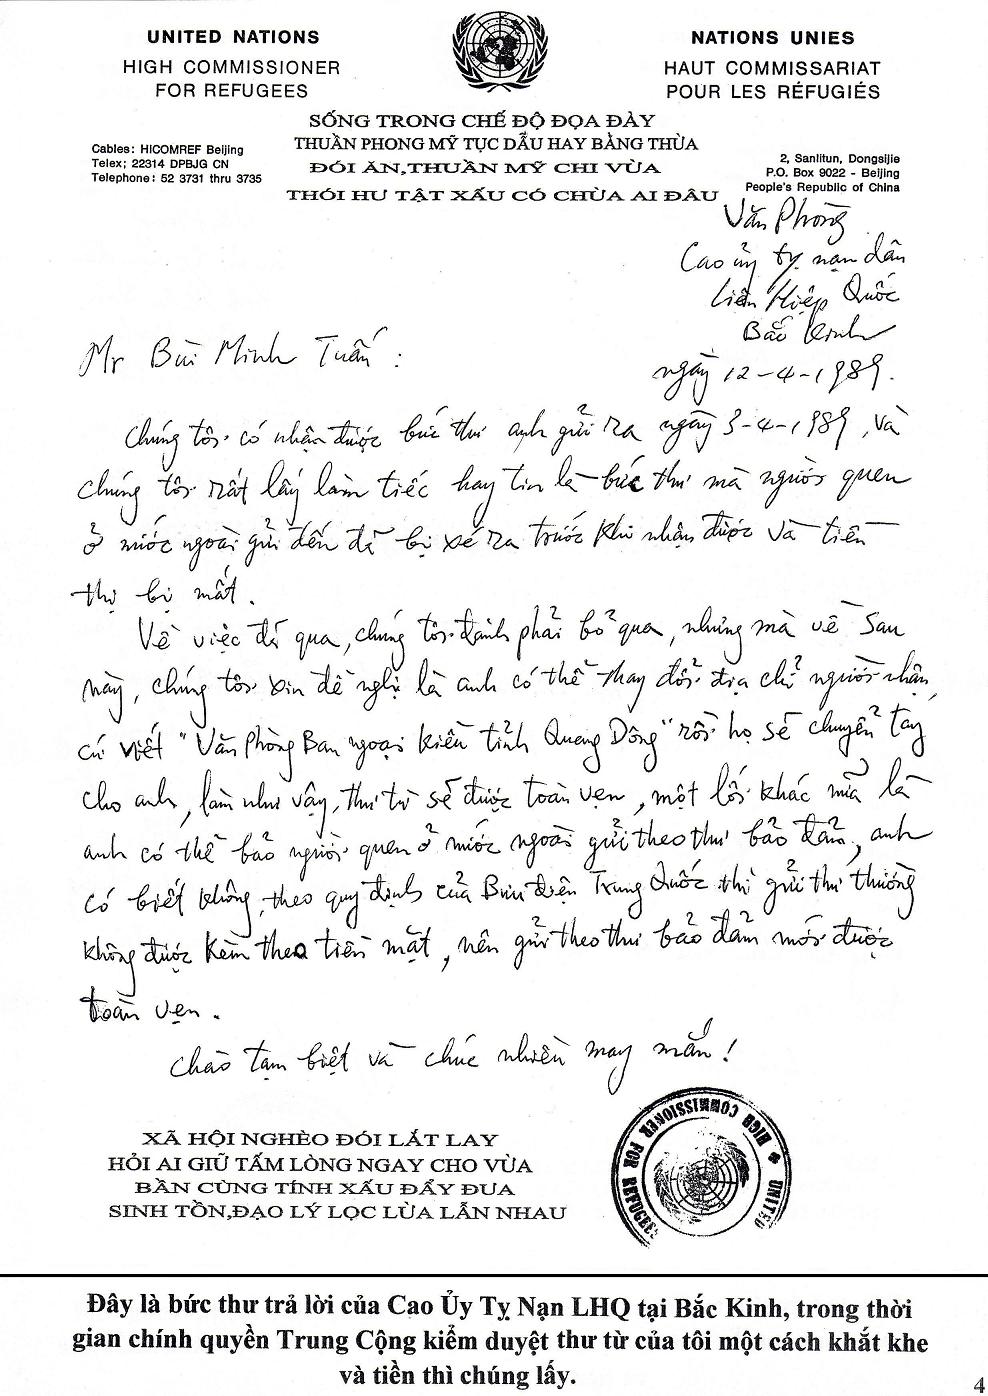 UNITED NATIONS
HIGH COMMISSIONER
FOR REFUGEES
NATIONS UNIES
HAUT COMMISSARIAT
POUR LES RÉFUGIÉS
SỐNG TRONG CHẾ ĐỘ ĐỌA ĐÀY
THUẦN PHONG MỸ TỤC DẪU HAY BẰNG THỪA
ĐÓI ĂN,THUẦN MỸ CHI VỪA
THÓI HƯ TẬT XẤU CÓ CHỪA AI ĐÂU
Cables: HICOMREF Beijing
Telex; 22314 DPBJG CN
Telephone: 52 3731 thru 3735
2, Sanlitun, Dongsijie
P.O. Box 9022 - Beijing
People's Republic of China
Văn Phòng
Cao ủy tỵ nạn dân
Liên Hiệp Quốc
Bắc Kinh
ngày 12-4-1989.
Mr Bùi Minh Tuấn :
Chúng tôi có nhận được bức thư anh gửi ra ngày 3-4-1989, và
chúng tôi rất lấy làm tiếc hay tin là bức thư mà người quen
ở nước ngoài gửi đến đã bị xé ra trước khi nhận được và tiền
thì bị mất.
Về việc đã qua, chúng tôi đành phải bỏ qua, nhưng mà về sau
này, chúng tôi xin đề nghị là anh có thể thay đổi địa chỉ người nhận,
cứ viết "Văn Phòng Ban ngoại kiều tỉnh Quang Đông" rồi họ sẽ chuyển tay
cho anh, làm như vậy, thư từ sẽ được toàn vẹn, một lối khác nữa là
anh có thể bảo người quen ở nước ngoài gửi theo thư bảo đảm, anh
có biết không, theo quy định của Bưu điện Trung Quốc thì gửi thư thường
không được kèm theo tiền mặt, nên gửi theo thư bảo đảm mới được
toàn vẹn.
Chào tạm biệt và chúc nhiều may mắn!
XÃ HỘI NGHÈO ĐÓI LẮT LAY
HỎI AI GIỮ TẤM LÒNG NGAY CHO VỪA
BẦN CÙNG TÍNH XẤU ĐẨY ĐƯA
SINH TỒN,ĐẠO LÝ LỌC LỪA LẪN NHAU
UNITED
HIGH COMMISSIONER FOR REFUGEES
Đây là bức thư trả lời của Cao Ủy Tỵ Nạn LHQ tại Bắc Kinh, trong thời
gian chính quyền Trung Cộng kiểm duyệt thư từ của tôi một cách khắt khe
và tiền thì chúng lấy.
4